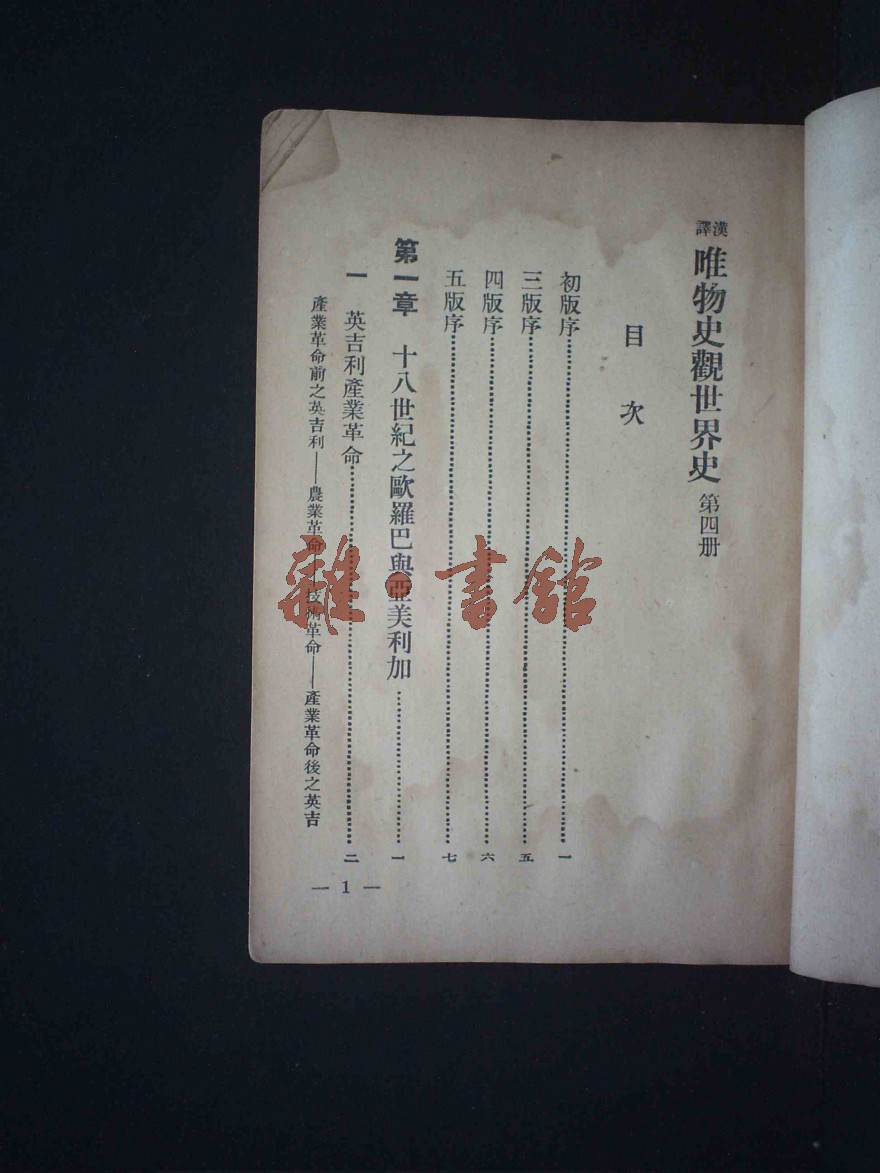 漢譯 唯物史觀世界史 第四册
目次
初版序……一
三版序……五
四版序……六
五版序……七
第一章 十八世紀之歐羅巴與亞美利加……一
一 英吉利產業革命……二
產業革命前之英吉利——農業革命——技術革命——產業革命後之英吉
— 1 —
雜·書館